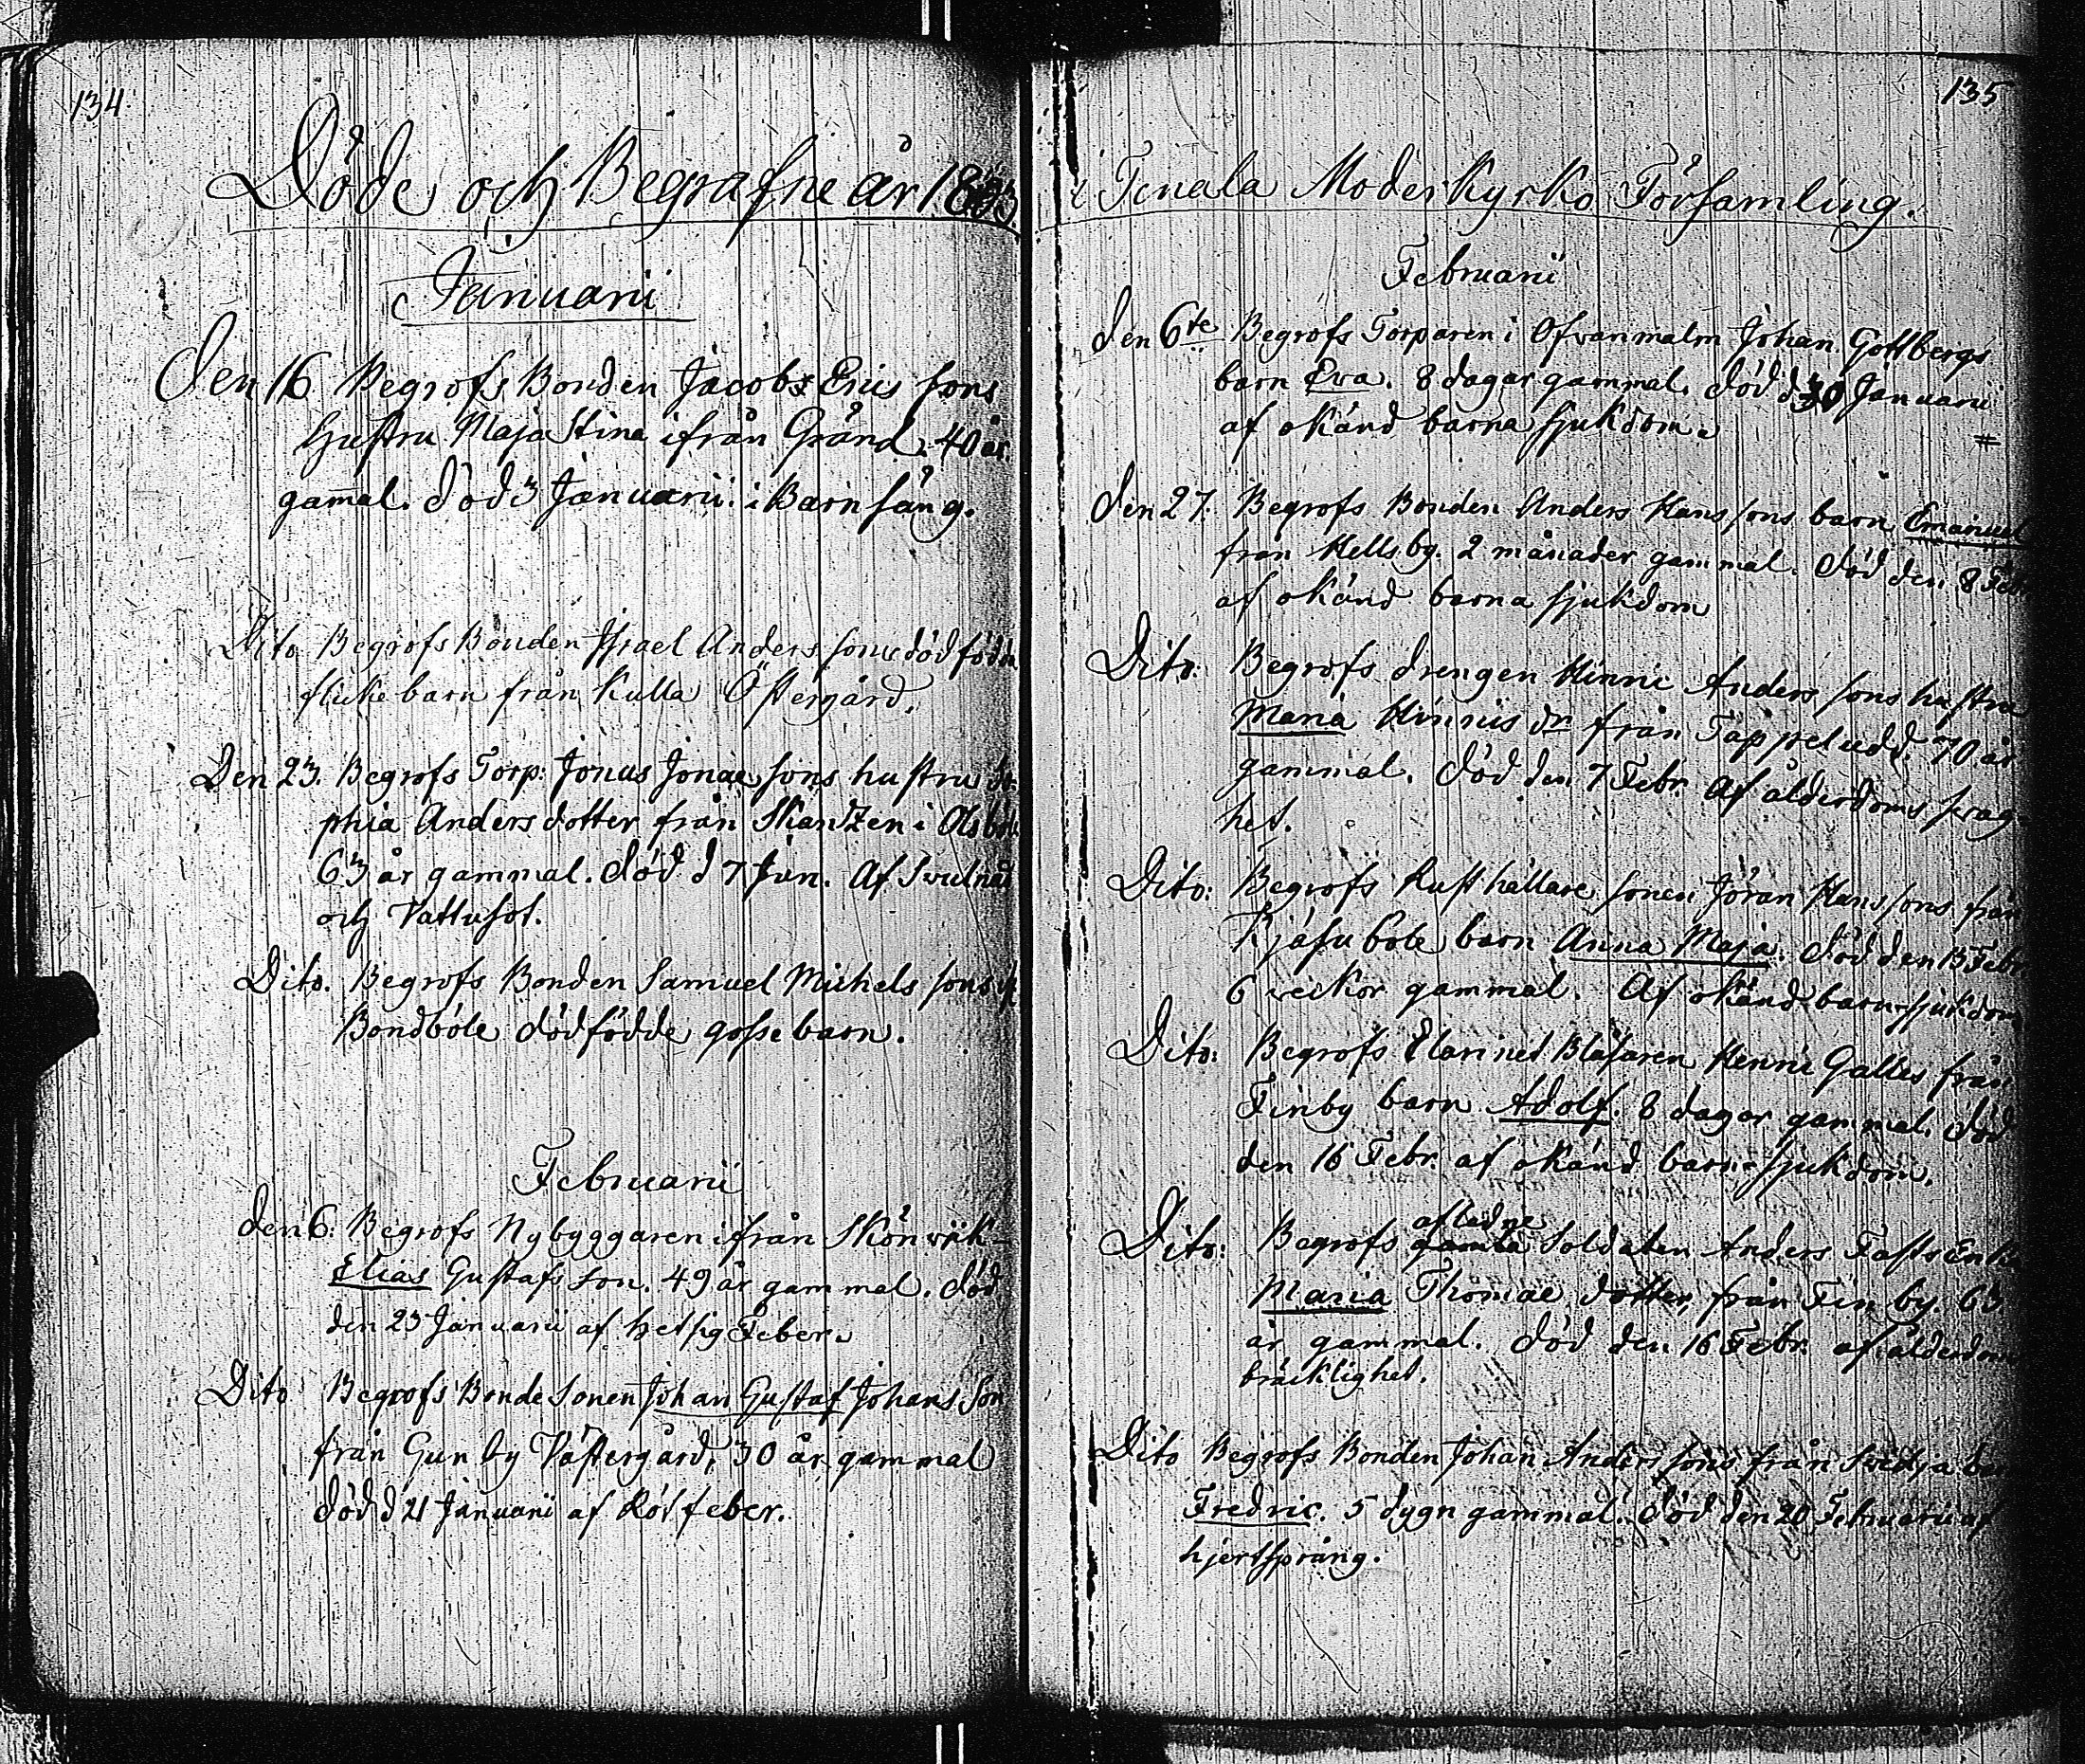 134
Döde och Begrafne år 1803
Januarii
Den 16 Begrofs Bonden Jacob Erics sons
hustru Maja Stina ifrån Gränd. 40 år
gamal. död 3 Januarii i Barnsäng.
Dito Begrofs Bonden Israel Anders sons dödfödda
flicke barn från Kulla Östergård.
Den 23. Begrofs Torp: Jonas Jonae sons hustru So-
phia Anders dotter från Skantzen i Olsböle
63 år gammal. död d 7 Jan. Af Swulnad
och Vattusot.
Dito. Begrofs Bonden Samuel Michels sons
Bondböle dödfödde gosse barn.
Februarii
den 6. Begrofs Nybyggaren ifrån Skönwik
Elias Gustafs son. 49 år gammal. död
den 23 Januarii af hetsig Feber.
Dito Begrofs Bonde Sonen Johan Gustaf Johans Son
från Gunby Västergård, 30 år gammal
död d 21 Januarii af Rötfeber.
135
i Tenala Moderkyrko Församling.
Februarii
den 6te Begrofs Torparen i Ofvanmalm Johan Gottbergs
barn Eva. 8 dagar gammal. död d 30 Januarii
af okänd barna sjukdom.
den 27. Begrofs Bonden Anders Hans sons barn Emanuel
från Hellsby. 2 månader gammal. död den 8 Febr
af okänd barna sjukdom
Dito: Begrofs drengen Hinric Anders sons hustru
Maria Hinrics dr från Täppeludd. 70 år
gammal. död den 7 Febr. Af ålderdoms swag
het.
Dito: Begrofs Rusthållare sonen Jöran Hans sons från
Kjäsuböle barn Anna Maja. död den 13 Febr
6 veckor gammal. Af okänd barn sjukdom
Dito: Begrofs Clarinet Blåsaren Henric Galles från
Finby barn Adolf. 8 dagar gammal. död
den 16 Febr. af okänd barn-sjukdom.
afledne
Dito: Begrofs gamla Soldaten Anders Fasts Enka
Maria Thomae dotter, från Finby. 63
år gammal. död den 16 Febr. af ålderdoms
bräcklighet.
Dito Begrofs Bonden Johan Anders sons från Swedja barn
Fredric. 5 dygn gammal. död den 20 Februarii af
hjertsprång.